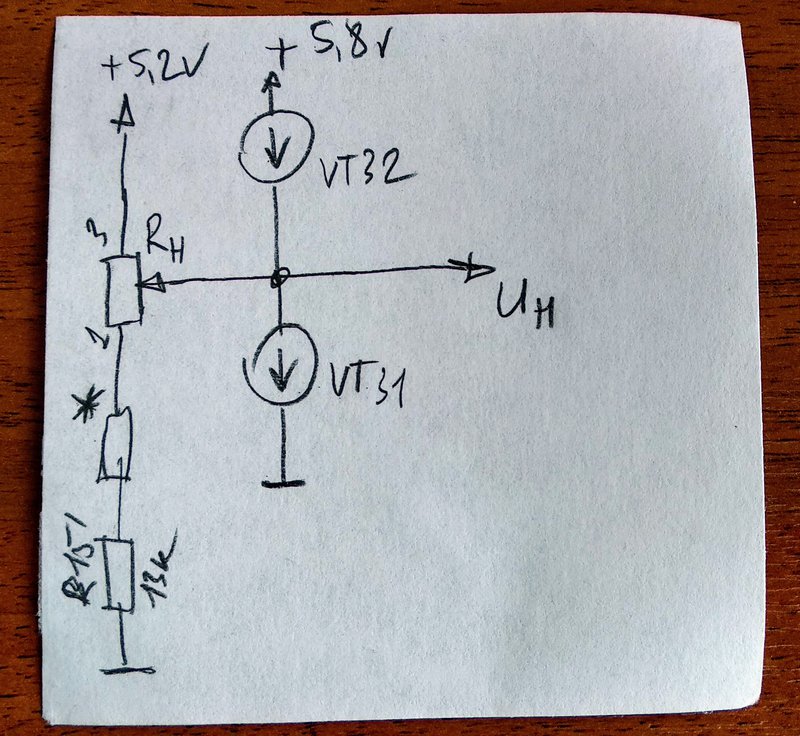 +5,2V
+ 5,8V
VT32
3
RН
UН
1
VT31
*
R151
13к